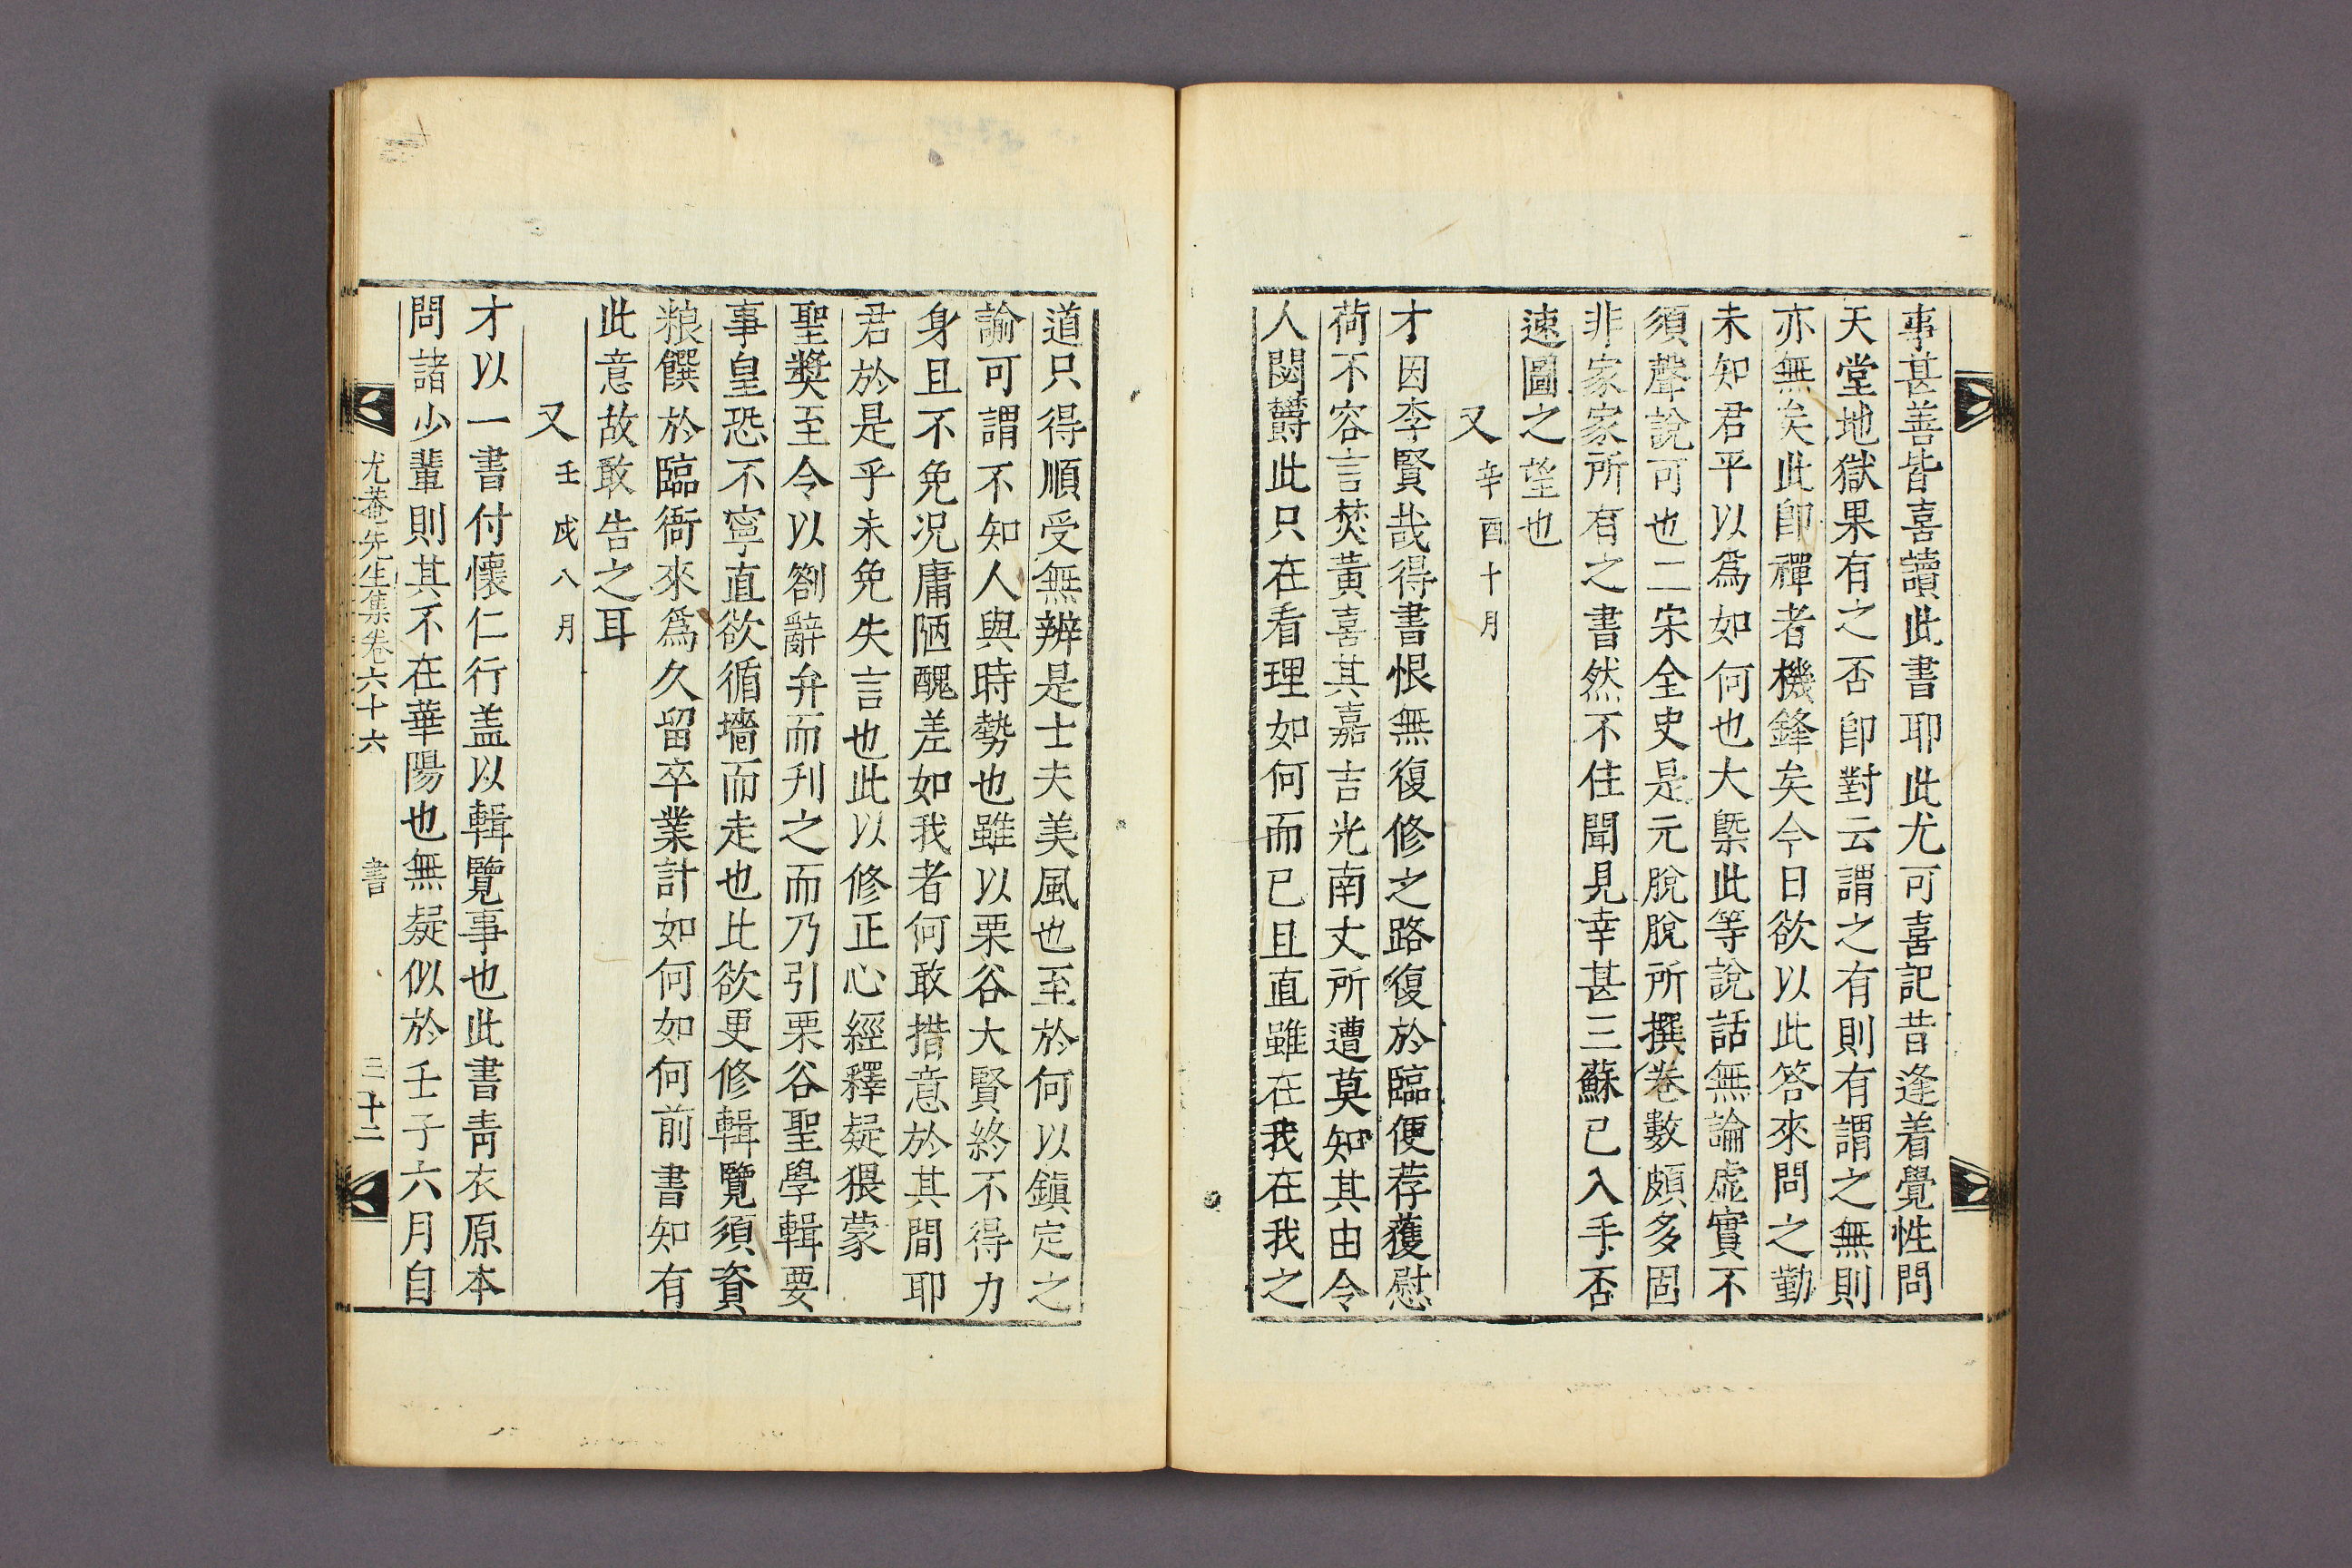 事甚善皆喜讀此書耶此尤可喜記昔逢着覺性問
天堂地獄果有之否卽對云謂之有則有謂之無則
亦無矣此卽禪者機鋒矣今日欲以此答來問之勤
未知君平以爲如何也大槩此等說話無論虛實不
須聲說可也二宋全史是元脫脫所撰卷數頗多固
非家家所有之書然不住聞見幸甚三蘇已入手否
速圖之望也
又辛酉十月
才因李賢哉得書恨無復修之路復於臨便荐獲慰
荷不容言焚黃喜其嘉吉光南丈所遭莫知其由令
人悶欝此只在看理如何而已且直雖在我在我之
道只得順受無辨是士夫美風也至於何以鎭定之
諭可謂不知人與時勢也雖以栗谷大賢終不得力
身且不免况庸陋醜差如我者何敢措意於其間耶
君於是乎未免失言也此以修正心經釋疑猥蒙
聖奬至令以劄辭弁而刋之而乃引栗谷聖學輯要
事皇恐不寧直欲循墻而走也比欲更修輯覽須資
粮饌於臨衙來爲久留卒業計如何如何前書知有
此意故敢告之耳
又壬戌八月
才以一書付懷仁行盖以輯覽事也此書靑衣原本
問諸少輩則其不在華陽也無疑似於壬子六月自
尤菴先生集卷六十六 書 三十二